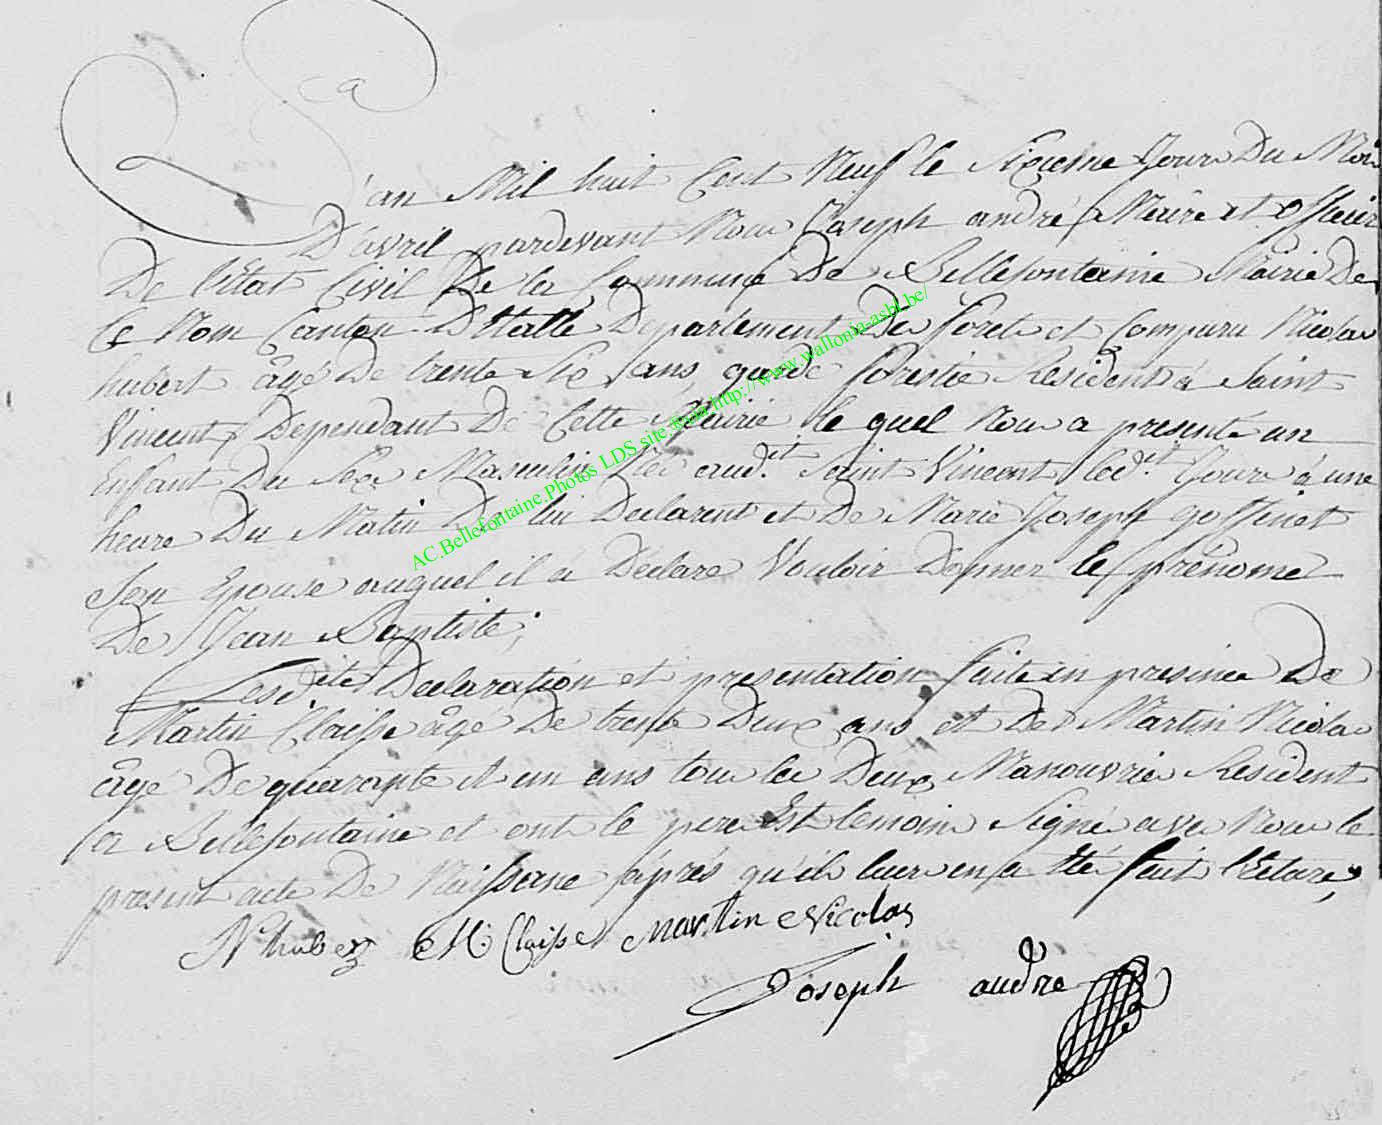 L'an Mil huit Cent Neuf le Sixieme Jour Du Mois
D'avril pardevant Nous Joseph andré Maire et officier
De l'Etat Civil De la Commune De Bellefontaine Mairie De
Ce Nom Canton D'Etalle Departement Des foret et Comparu Nicolas
hubert âgé De trente Six ans garde forestie Resident a Saint
Vincent Dependant De Cette Mairie le quel Nous a presenté un
Enfant Du Sexe Masculin Née aud.it Saint Vincent led.it Jour a une
heure Du Matin De lui Declarent et De Marie Joseph goffinet
Son Epouse auquel il a Déclaré Vouloir Donner le prénome
De Jean Baptiste;
Lesd.ites Declaration et presentation faite en presence De
Martin Claisse âgé De trente Deux ans et De Martin Nicolas
âgé De quarante et un ans tous les Deux Manouvrier Resident
a Bellefontaine et ont le pere Est temoin Signé avec Nous le
present acte De Naissance après qu'il leur en a Eté fait lecture,
N: huber M: Claisse Martin Nicolas
Joseph andre
AC.Bellefontaine.Photos LDS site http://www.wallonia-asbl.be/